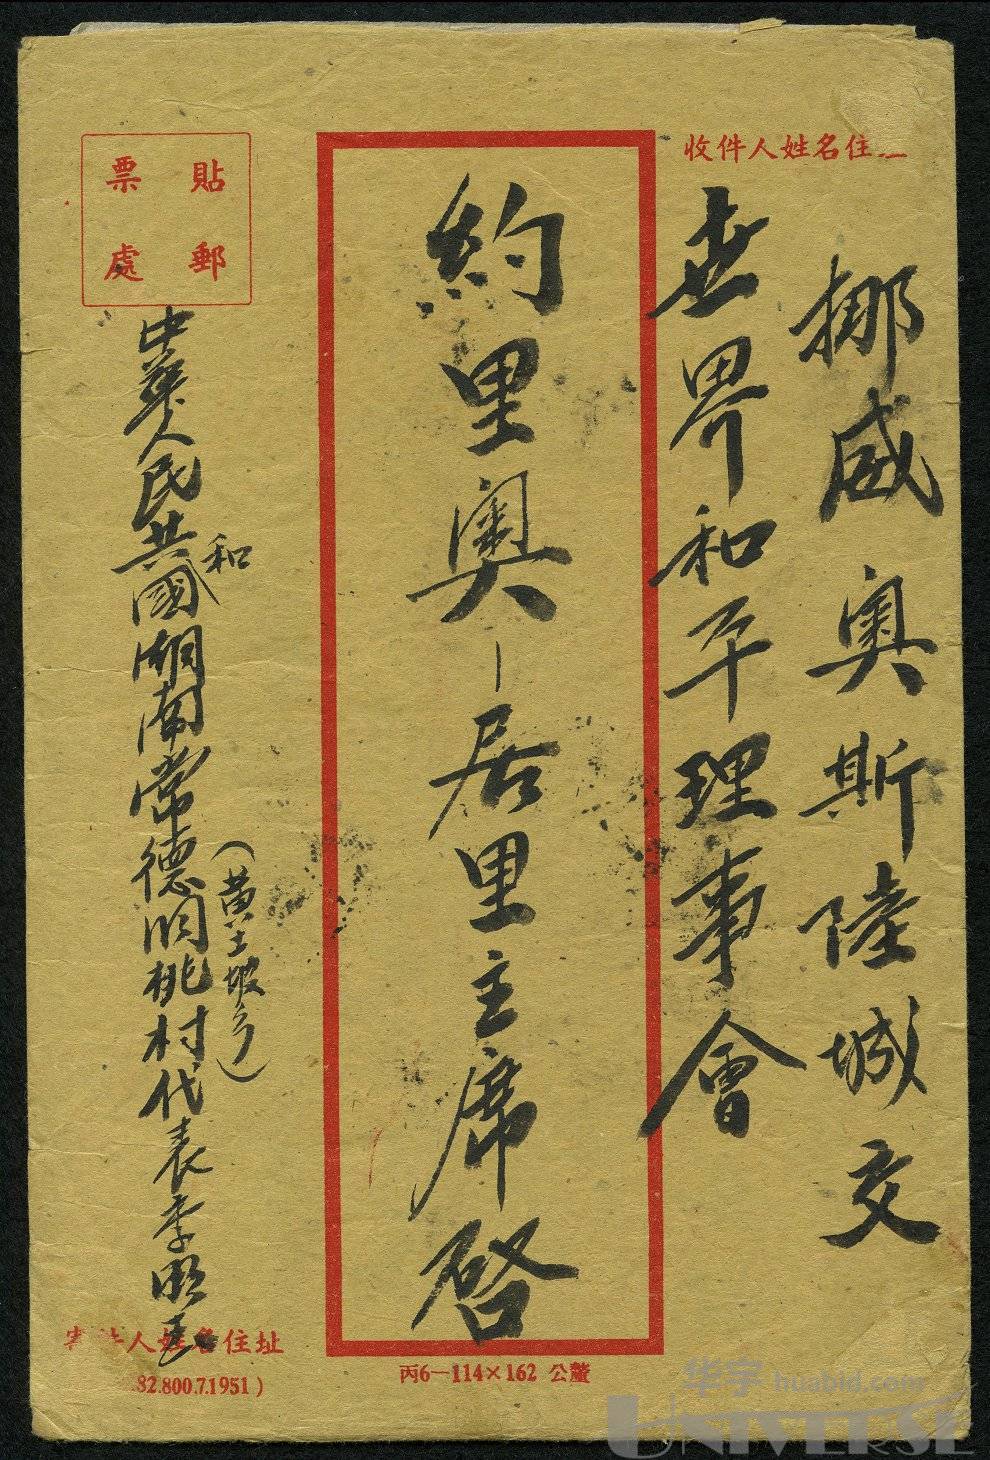 收件人姓名住
挪威奧斯陸城交
世界和平理事會
約里奧-居里主席啓
貼郵
票處
中華人民共和國湖南常德
(黃土坡乡)
桃村代表李
人姓名住址
82.800.7.1951)
丙6-114×162 公釐
华宇 huabid.com
UNIVERSE